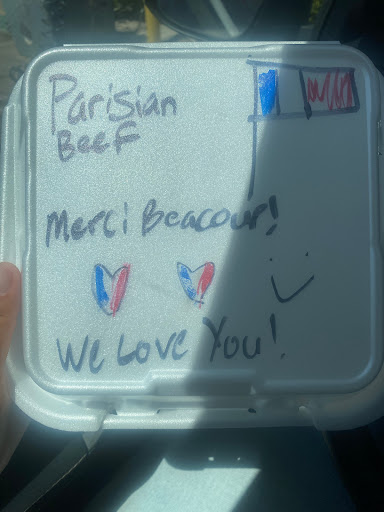 Parisian
Beef
Merci Beacour!
We Love You!